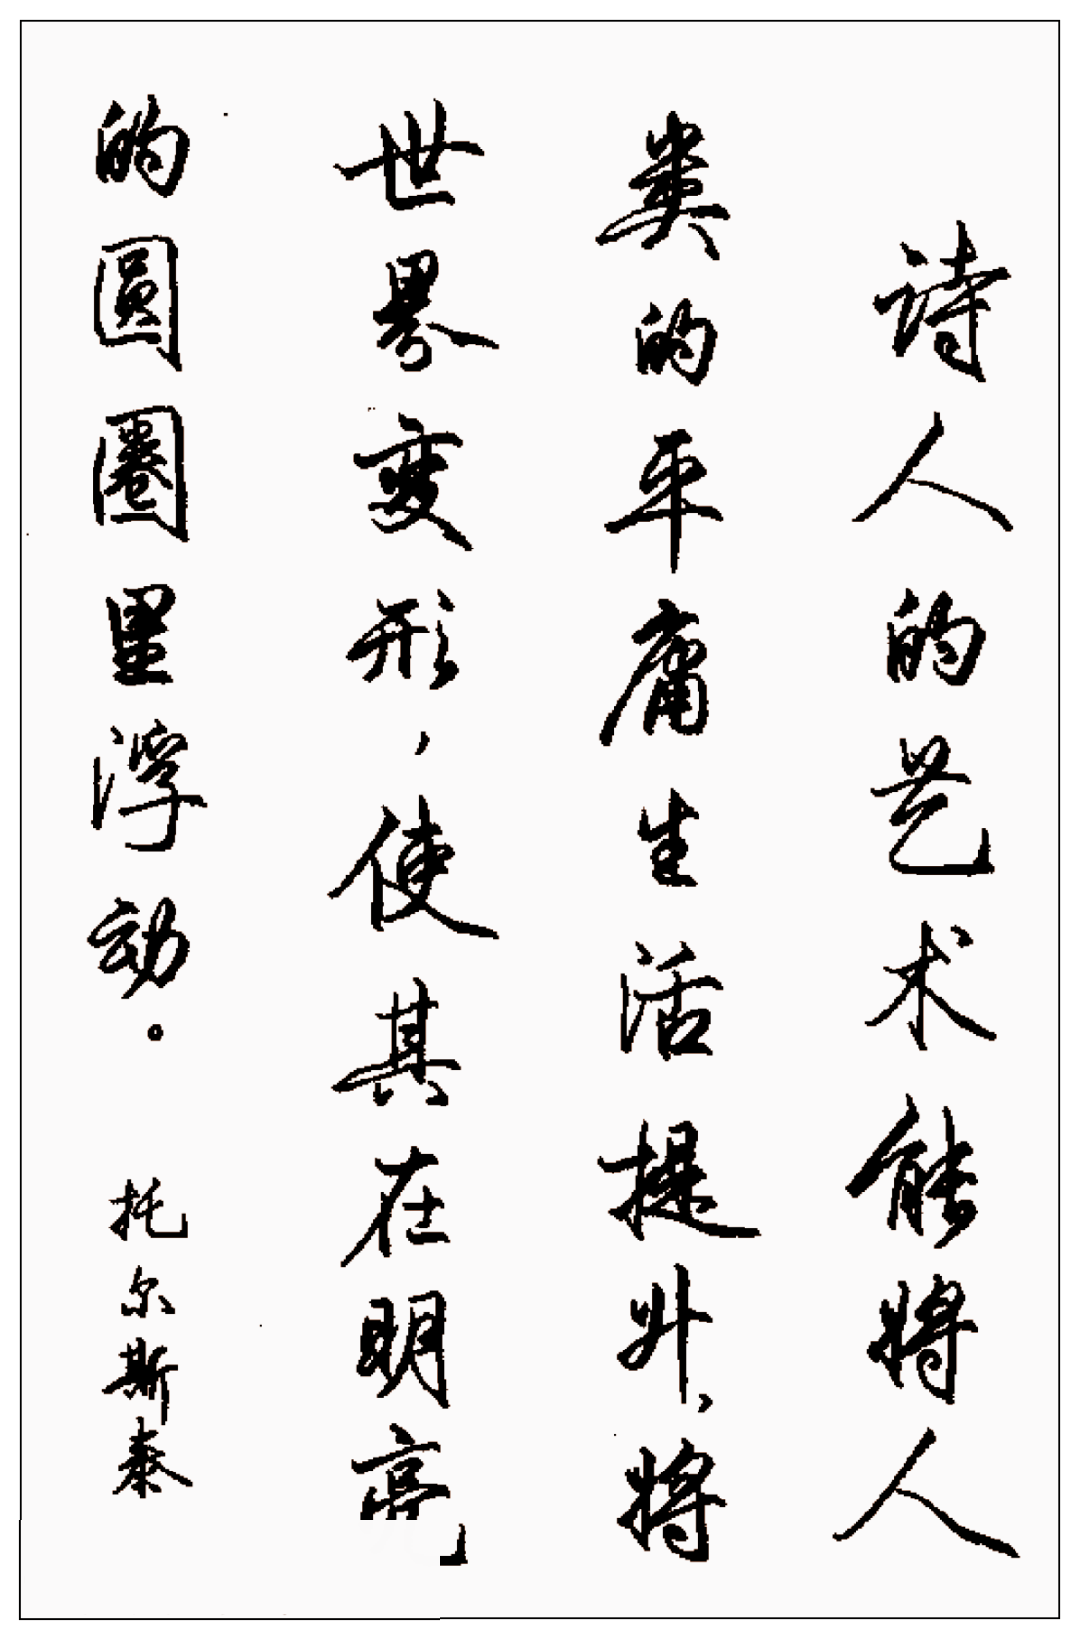 诗人的艺术能将人
类的平庸生活提升，将
世界变形，使其在明亮
的圆圈里浮动。 托尔斯泰